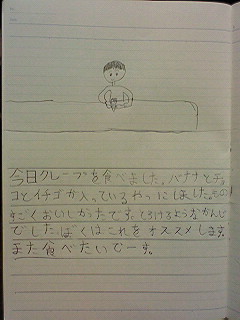 今日クレープを食べました。バナナとチョ
コとイチゴが入っているやつにしました。もの
すごくおいしかったです。とろけるようなかんじ
でした。ぼくはこれをオススメします。
また食べたいでーす。